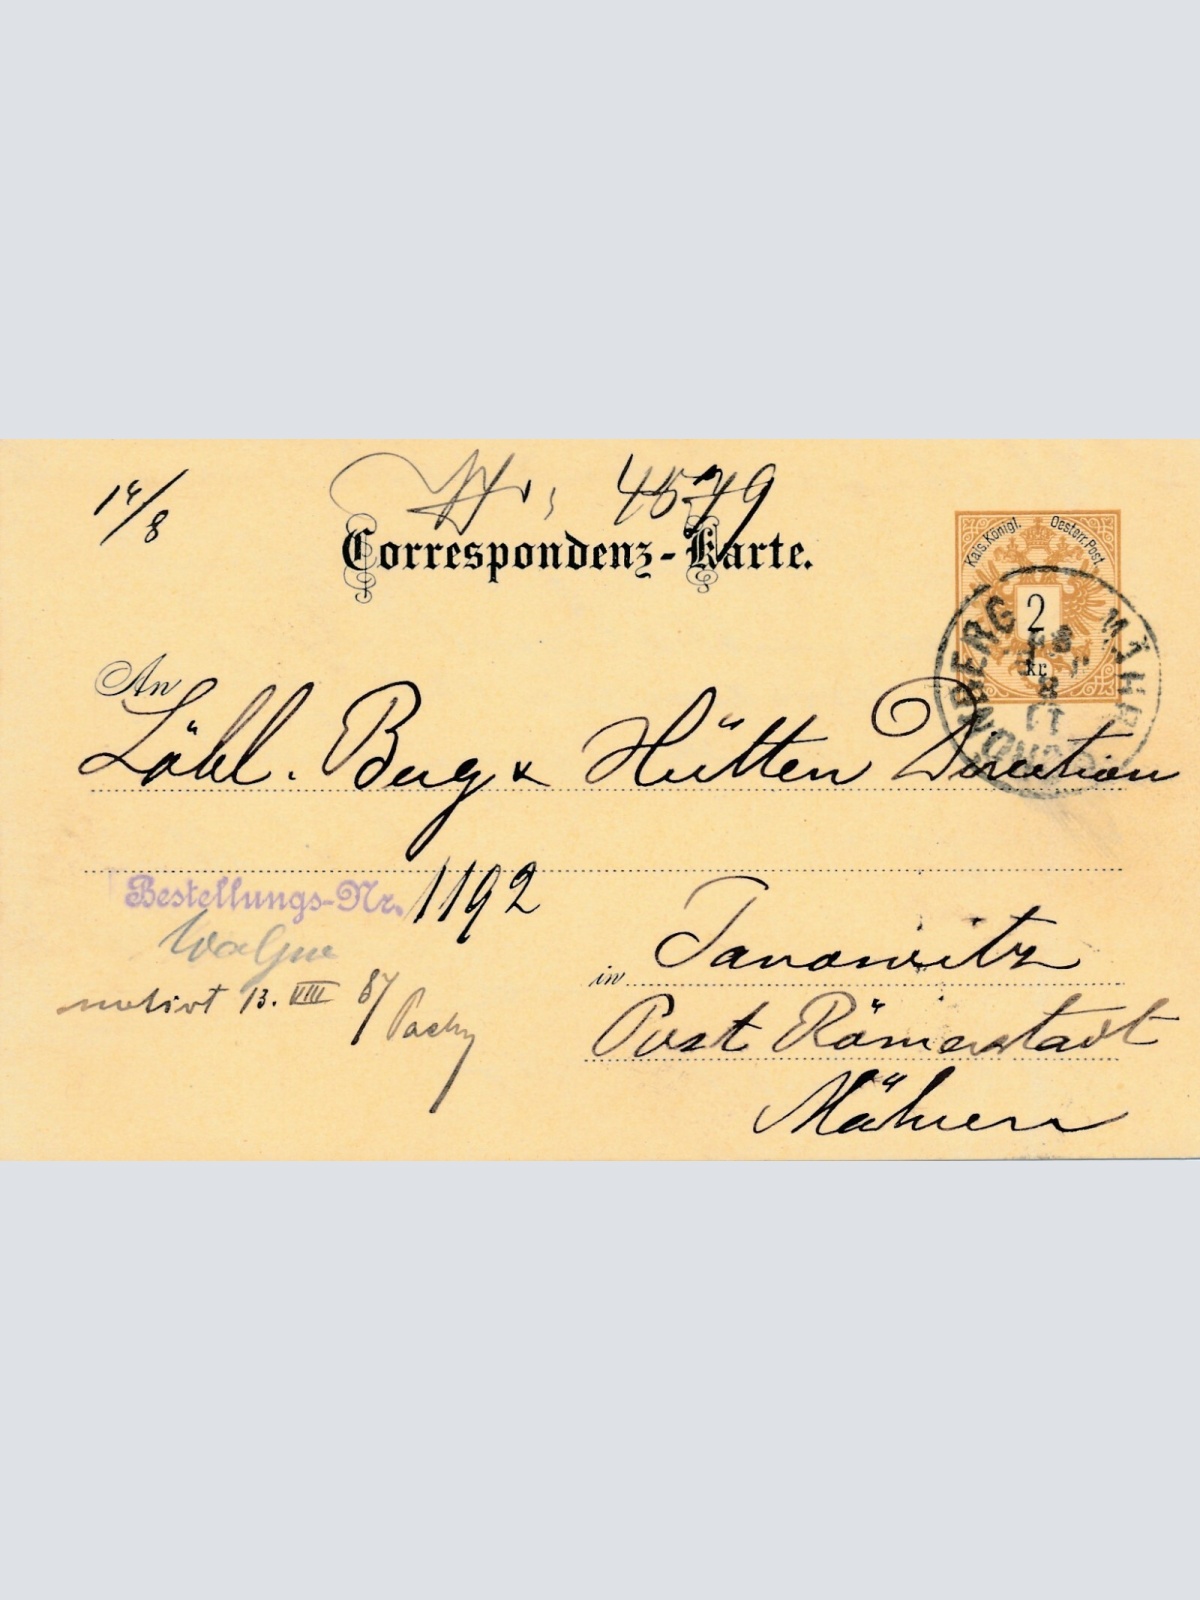 14/8
Nr. 4579
Correspondenz-Karte.
Kais. Königl. Oesterr. Post
2
kr.
MÄHR. SCHÖNBERG
An
Löbl. Berg & Hütten Direction
Bestellungs-Nr. 1192
notirt 13. VIII 87
in Janowitz
Post Römerstadt
Mähren